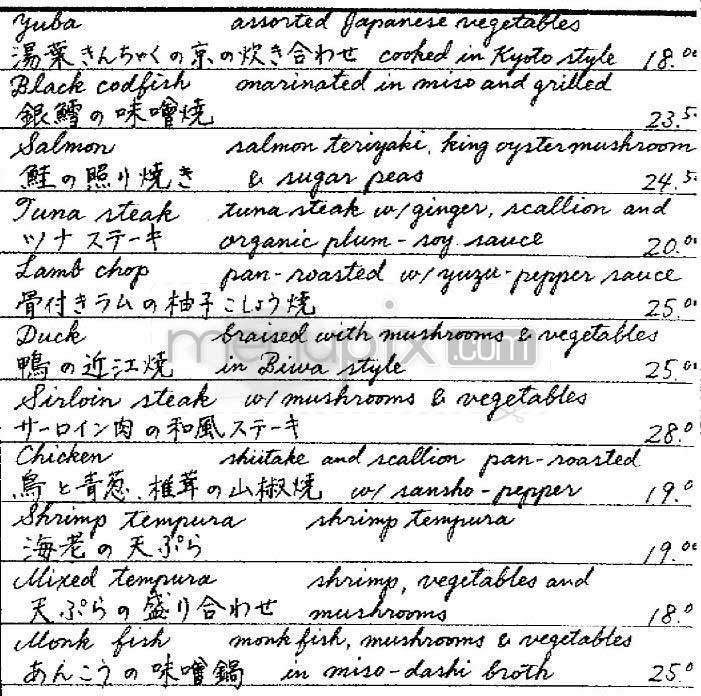 Yuba assorted Japanese vegetables
湯葉きんちゃくの京の炊き合わせ cooked in Kyoto style 18.00
Black codfish marinated in miso and grilled
銀鱈の味噌焼 23.5
Salmon salmon teriyaki, king oyster mushroom
鮭の照り焼き & sugar peas 24.5
Tuna steak tuna steak w/ginger, scallion and
ツナステーキ organic plum-soy sauce 20.00
Lamb chop pan-roasted w/yuzu-pepper sauce
骨付きラムの柚子こしょう焼 25.00
Duck braised with mushrooms & vegetables
鴨の近江焼 in Biwa style 25.00
menupix.com
Sirloin steak w/mushrooms & vegetables
サーロイン肉の和風ステーキ 28.0
Chicken shiitake and scallion pan-roasted
鳥と青葱、椎茸の山椒焼 w/ sansho-pepper 19.0
Shrimp tempura shrimp tempura
海老の天ぷら 19.00
Mixed tempura shrimp, vegetables and
天ぷらの盛り合わせ mushrooms 18.0
Monk fish monkfish, mushrooms & vegetables
あんこうの味噌鍋 in miso-dashi broth 25.0